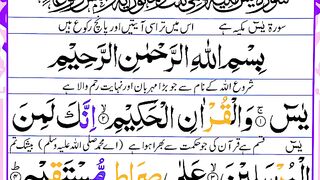 سورۃ یٰسٓ مکیہ ہے اس میں تراسی آیتیں اور پانچ رکوع ہیں
بِسْمِ اللّٰهِ الرَّحْمٰنِ الرَّحِیْمِ
شروع اللہ کے نام سے جو بڑا مہربان اور نہایت رحم والا ہے
یٰسٓ ۚ﴿۱﴾ وَالْقُرْاٰنِ الْحَكِیْمِ ۙ﴿۲﴾ اِنَّكَ لَمِنَ
یٰسٓ قسم ہے قرآن کی جو حکمت سے بھرا ہوا ہے (اے محمد صلی اللہ علیہ وسلم) بیشک تم
الْمُرْسَلِیْنَ ۙ﴿۳﴾ عَلٰی صِرَاطٍ مُّسْتَقِیْمٍ